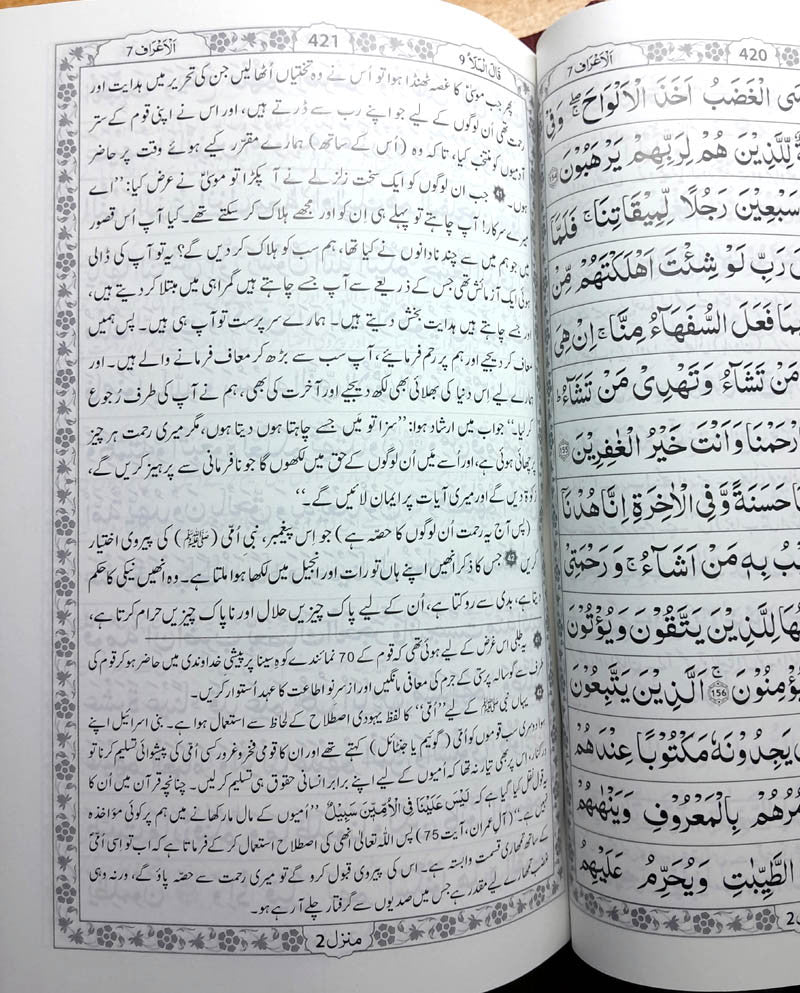 الۡاَعۡرَاف 7
421
قَالَ الۡمَلَاُ 9
پھر جب موسیٰؑ کا غصہ ٹھنڈا ہوا تو اُس نے وہ تختیاں اُٹھا لیں جن کی تحریر میں ہدایت اور
رحمت تھی اُن لوگوں کے لیے جو اپنے رب سے ڈرتے ہیں، اور اس نے اپنی قوم کے ستر
آدمیوں کو منتخب کیا، تاکہ وہ (اُس کے ساتھ) ہمارے مقرر کیے ہوئے وقت پر حاضر
ہوں۔ جب ان لوگوں کو ایک سخت زلزلے نے آ پکڑا تو موسیٰؑ نے عرض کیا: ’’اے
میرے سرکار! آپ چاہتے تو پہلے ہی اِن کو اور مجھے ہلاک کر سکتے تھے۔ کیا آپ اُس قصور
میں جو ہم میں سے چند نادانوں نے کیا تھا، ہم سب کو ہلاک کر دیں گے؟ یہ تو آپ کی ڈالی
ہوئی ایک آزمائش تھی جس کے ذریعے سے آپ جسے چاہتے ہیں گمراہی میں مبتلا کر دیتے ہیں،
اور جسے چاہتے ہیں ہدایت بخش دیتے ہیں۔ ہمارے سرپرست تو آپ ہی ہیں۔ پس ہمیں
معاف کر دیجیے اور ہم پر رحم فرمایئے، آپ سب سے بڑھ کر معاف فرمانے والے ہیں۔ اور
ہمارے لیے اس دنیا کی بھلائی بھی لکھ دیجیے اور آخرت کی بھی، ہم نے آپ کی طرف رُجوع
کر لیا۔‘‘ جواب میں ارشاد ہوا: ’’سزا تو مَیں جسے چاہتا ہوں دیتا ہوں، مگر میری رحمت ہر چیز
پر چھائی ہوئی ہے، اور اُسے میں اُن لوگوں کے حق میں لکھوں گا جو نافرمانی سے پرہیز کریں گے،
زکوٰۃ دیں گے اور میری آیات پر ایمان لائیں گے۔‘‘
(پس آج یہ رحمت اُن لوگوں کا حصّہ ہے) جو اِس پیغمبر، نبی اُمّی (ﷺ) کی پیروی اختیار
کریں جس کا ذکر انھیں اپنے ہاں تورات اور انجیل میں لکھا ہوا ملتا ہے۔ وہ انھیں نیکی کا حکم
دیتا ہے، بدی سے روکتا ہے، اُن کے لیے پاک چیزیں حلال اور ناپاک چیزیں حرام کرتا ہے،
یہ طلبی اس غرض کے لیے ہوئی تھی کہ قوم کے 70 نمائندے کوہِ سینا پر پیشی خداوندی میں حاضر ہو کر قوم کی
طرف سے گوسالہ پرستی کے جرم کی معافی مانگیں اور از سرِ نو اطاعت کا عہد اُستوار کریں۔
یہاں نبی ﷺ کے لیے ’’اُمّی‘‘ کا لفظ یہودی اصطلاح کے لحاظ سے استعمال ہوا ہے۔ بنی اسرائیل اپنے
سوا دوسری سب قوموں کو اُمّی (گوئیم یا جنٹائل) کہتے تھے اور ان کا قومی فخر و غرور کسی اُمّی کی پیشوائی تسلیم کرنا تو
درکنار، اس پر بھی تیار نہ تھا کہ اُمیوں کے لیے اپنے برابر انسانی حقوق ہی تسلیم کر لیں۔ چنانچہ قرآن میں اُن کا
یہ قول نقل کیا گیا ہے کہ لَيْسَ عَلَيْنَا فِي الْاُمِّيّٖنَ سَبِيْلٌ ’’اُمیوں کے مال مار کھانے میں ہم پر کوئی مؤاخذہ
نہیں ہے۔‘‘ (آلِ عمران، آیت 75) پس اللہ تعالیٰ اُنھی کی اصطلاح استعمال کر کے فرماتا ہے کہ اب تو اِسی اُمّیؐ
کے ساتھ تمھاری قسمت وابستہ ہے۔ اس کی پیروی قبول کرو گے تو میری رحمت سے حصّہ پاؤ گے، ورنہ وہی
غضب تمھارے لیے مقدر ہے جس میں صدیوں سے گرفتار چلے آ رہے ہو۔
منزل 2
420
الۡاَعۡرَاف 7
الْغَضَبُ اَخَذَ الْاَلْوَاحَ ۖۚ وَفِيْ
لِّلَّذِيْنَ هُمْ لِرَبِّهِمْ يَرْهَبُوْنَ
سَبْعِيْنَ رَجُلًا لِّمِيْقَاتِنَا ۚ فَلَمَّآ
رَبِّ لَوْ شِئْتَ اَهْلَكْتَهُمْ مِّنْ
فَعَلَ السُّفَهَآءُ مِنَّا ۚ اِنْ هِيَ
مَنْ تَشَآءُ وَتَهْدِيْ مَنْ تَشَآءُ ۭ
وَاَنْتَ خَيْرُ الْغٰفِرِيْنَ 155
حَسَنَةً وَّفِي الْاٰخِرَةِ اِنَّا هُدْنَآ
بِهٖ مَنْ اَشَآءُ ۚ وَرَحْمَتِيْ
لِلَّذِيْنَ يَتَّقُوْنَ وَيُؤْتُوْنَ
يُؤْمِنُوْنَ 156 اَلَّذِيْنَ يَتَّبِعُوْنَ
يَجِدُوْنَهٗ مَكْتُوْبًا عِنْدَهُمْ
بِالْمَعْرُوْفِ وَيَنْهٰىهُمْ
الطَّيِّبٰتِ وَيُحَرِّمُ عَلَيْهِمُ